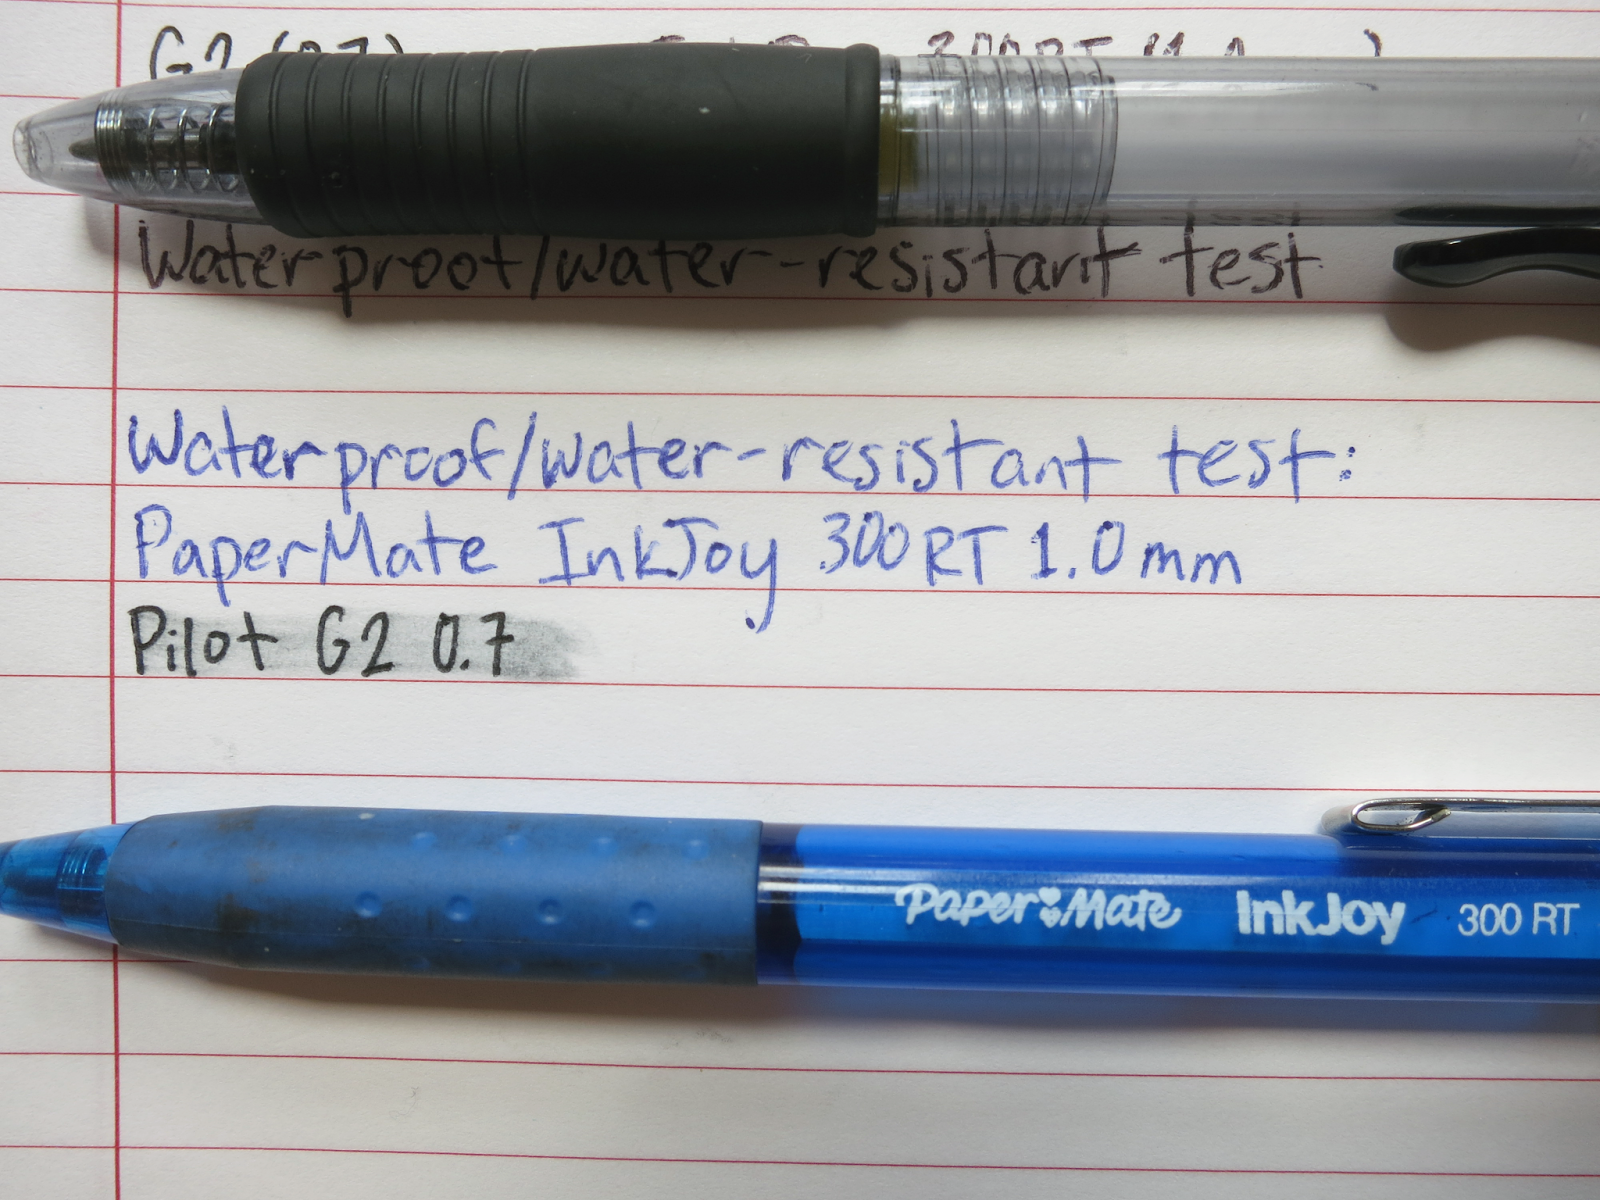 G2 (0.7) 300RT (1.0
Waterproof/water-resistant test
Waterproof/water-resistant test:
PaperMate InkJoy 300RT 1.0mm
Pilot G2 0.7
Paper Mate InkJoy 300 RT